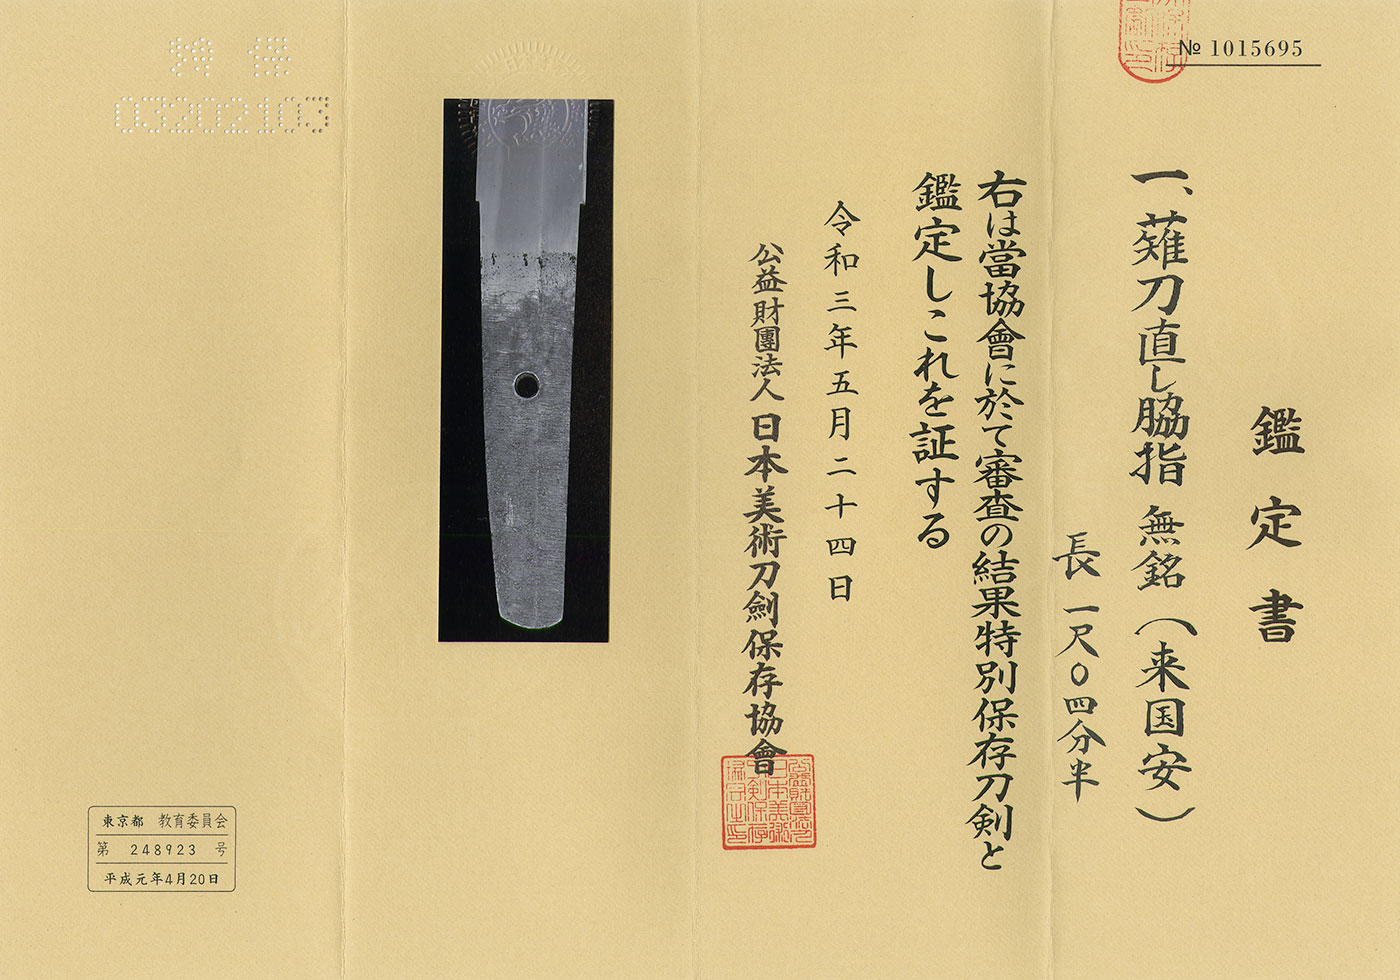 № 1015695
鑑定書
一、薙刀直し脇指 無銘（来国安）
長 一尺〇四分半
右は當協會に於て審査の結果特別保存刀剣と
鑑定しこれを証する
令和三年五月二十四日
公益財團法人 日本美術刀劍保存協會
特保
03202103
東京都 教育委員会
第 248923 号
平成元年4月20日